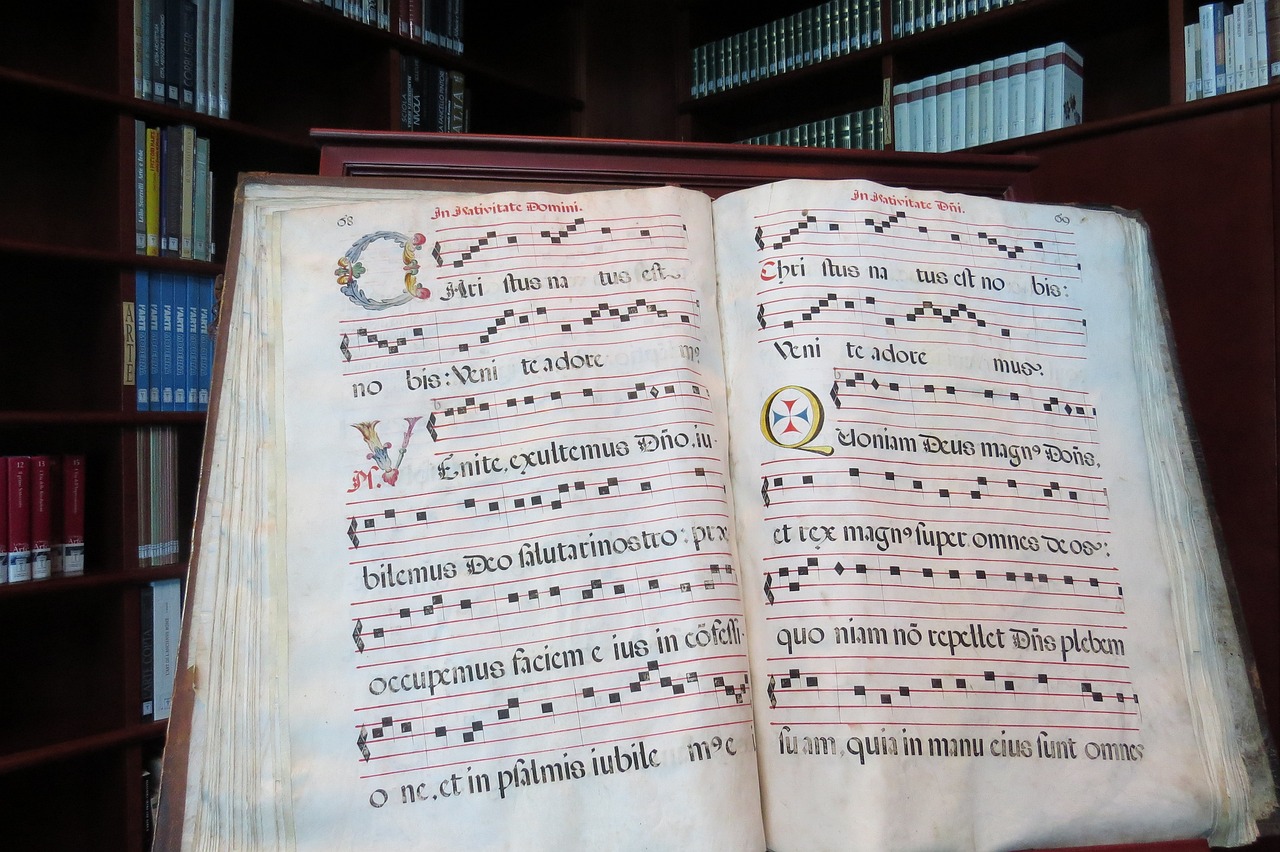 68
In Nativitate Domini.
CHri stus na tus est
no bis: Veni te adore m⁹
Ps. VEnite, exultemus Dño, iu-
bilemus Deo salutari nostro: præ
occupemus faciem e ius in cõfessi-
o ne, et in psalmis iubile m⁹ e
69
In Nativitate Dñi.
Chri stus na tus est no bis:
Veni te adore mus.
Quoniam Deus magn⁹ Doñs,
et rex magn⁹ super omnes deos:
quo niam nõ repellet Dñs plebem
suam, quia in manu eius sunt omnes
ARTE
L'ARTE
L'ARTE
L'ARTE
L'ARTE
L'ARTE